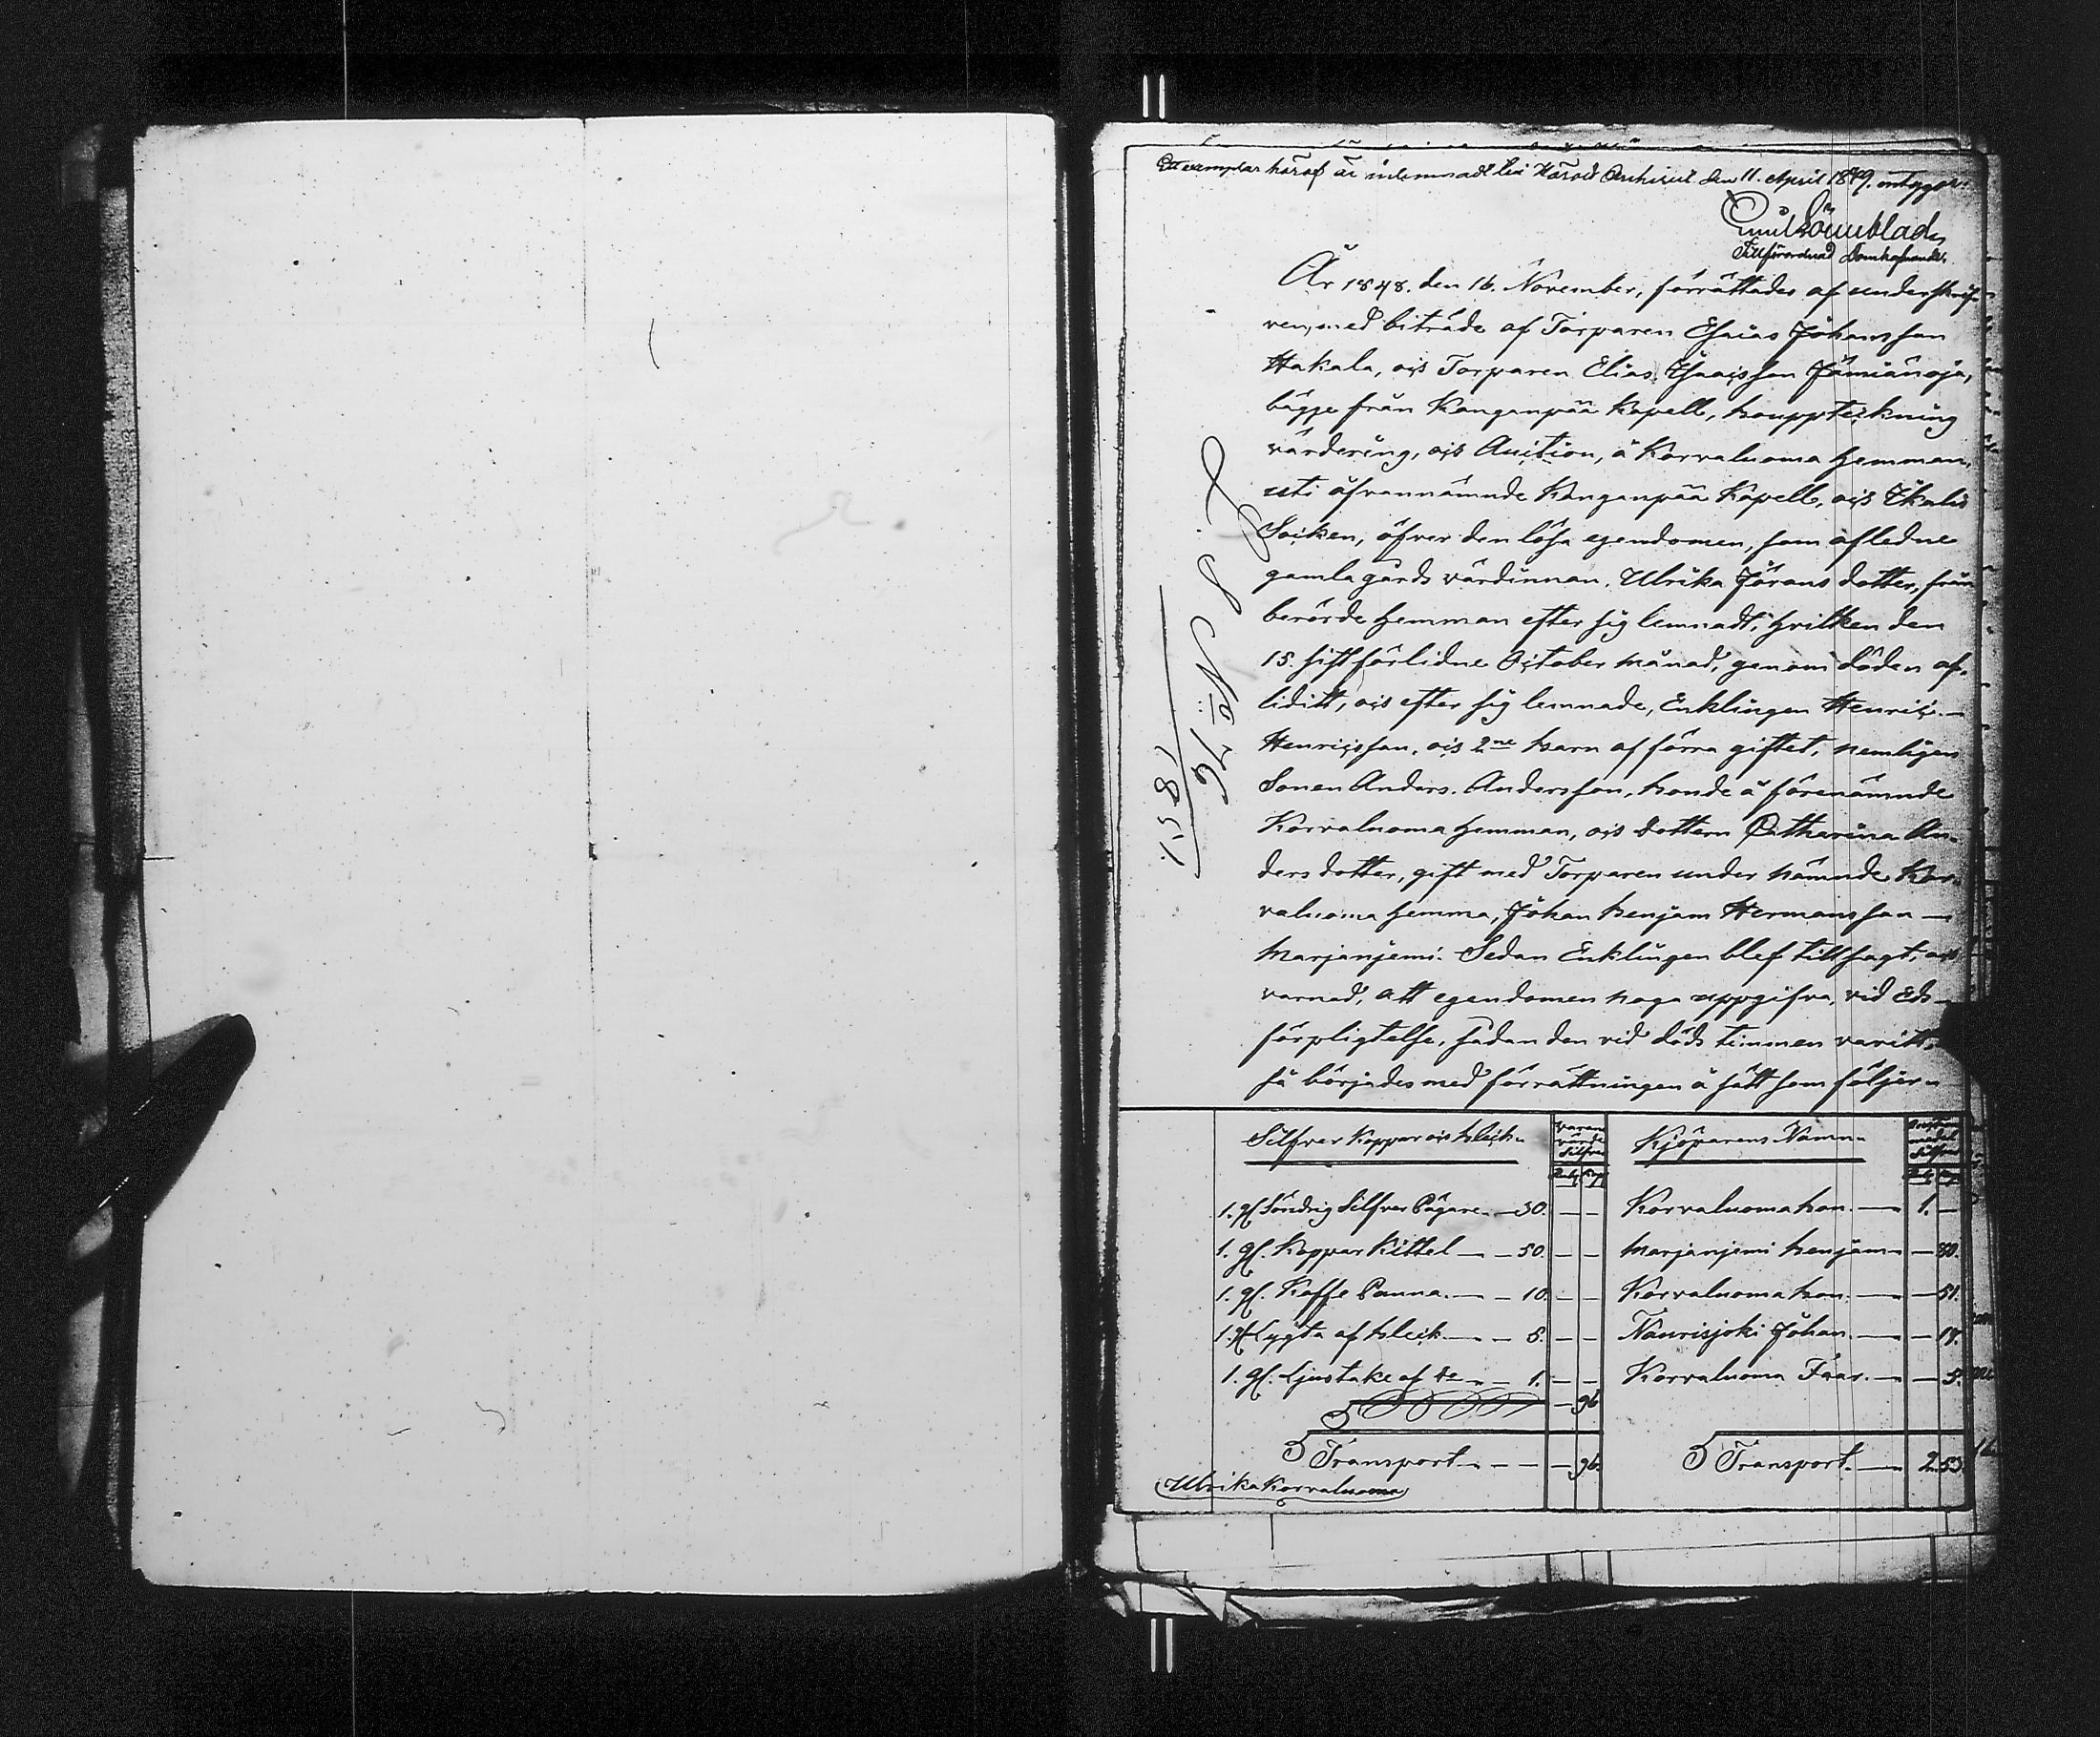 Ett exemplar häraf är inlemnadt till Härads Archivet den 11. April 1849. intygar:
Emil Lönnblad
Tillförordnad Domhafvande.
År 1848. den 16. November, förrättades af underskrif-
ven, med biträde af Torparen Esaias Johansson
Hakala, ocs Torparen Elias Isaacsson Jämiänoja,
bägge från Kanganpää Kapell, bouppteckning
värdering, ocs Auction, å Korvaluoma Hemman,
uti ofvannämnde Kanganpää Kapell, ocs Ikalis
Socken, öfver den lösa egendomen, som afledne
gamla gårds värdinnan, Ulrika Jörans dotter, från
berörde Hemman efter sig lemnadt, hvilken den
15. sistförlidne October månad, genom döden af-
liditt, ocs efter sig lemnade, Enklingen Henric
Henricsson, ocs 2ne barn af förra giftet, nemligen
Sonen Anders Andersson, bonde å förenämnde
Korvaluoma Hemman, ocs dottern Catharina An-
ders dotter, gift med Torparen under nämnde Kor-
valuoma Hemma, Johan Benjam Hermansson
Marjanjemi. Sedan Enklingen blef tillsagt, ocs
varnad, att egendomen noga uppgifva, vid Eds
förpligtelse, sådan den vid döds timmen varitt,
så börjades med förrättningen å sätt som följer
No 76
1581
Silfver Koppar ocs Bleck
Varans värde Silfver
Kjöparens Namn
Silfver
Rub. Kop.
Rub. Kop.
1. st Söndrig Silfver Bägare 30. Korvaluoma han. 1.
1. st. Koppar Kittel 50. Marjanjemi Benjam 80.
1. st. Kaffe Panna. 10. Korvaluoma han. 51.
1. st Lygta af Bleck 5. Naurisjoki Johan. 17.
1. st. Ljustake af do 1. Korvaluoma Isac. 5.
96
Transport 96. Transport. 2.53.
Ulrika Korvaluoma